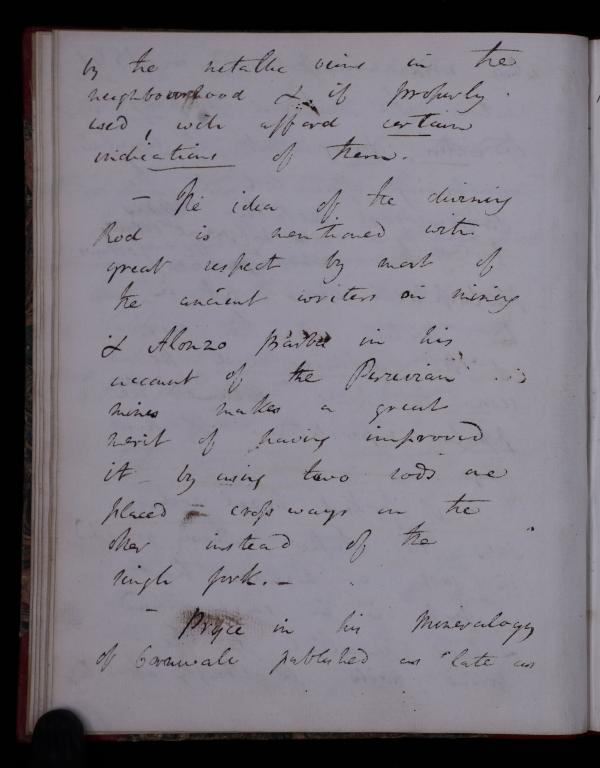 by the metallic veins in the
neighbourhood & if properly
used, will afford certain
indications of them.
— The idea of the divining
Rod is mentioned with
great respect by most of
the ancient writers on mining
& Alonzo Barba in his
account of the Peruvian
mines makes a great
merit of having improved
it by using two rods one
placed cross ways on the
other instead of the
single fork. —
— Pryce in his Mineralogy
of Cornwall published as late as